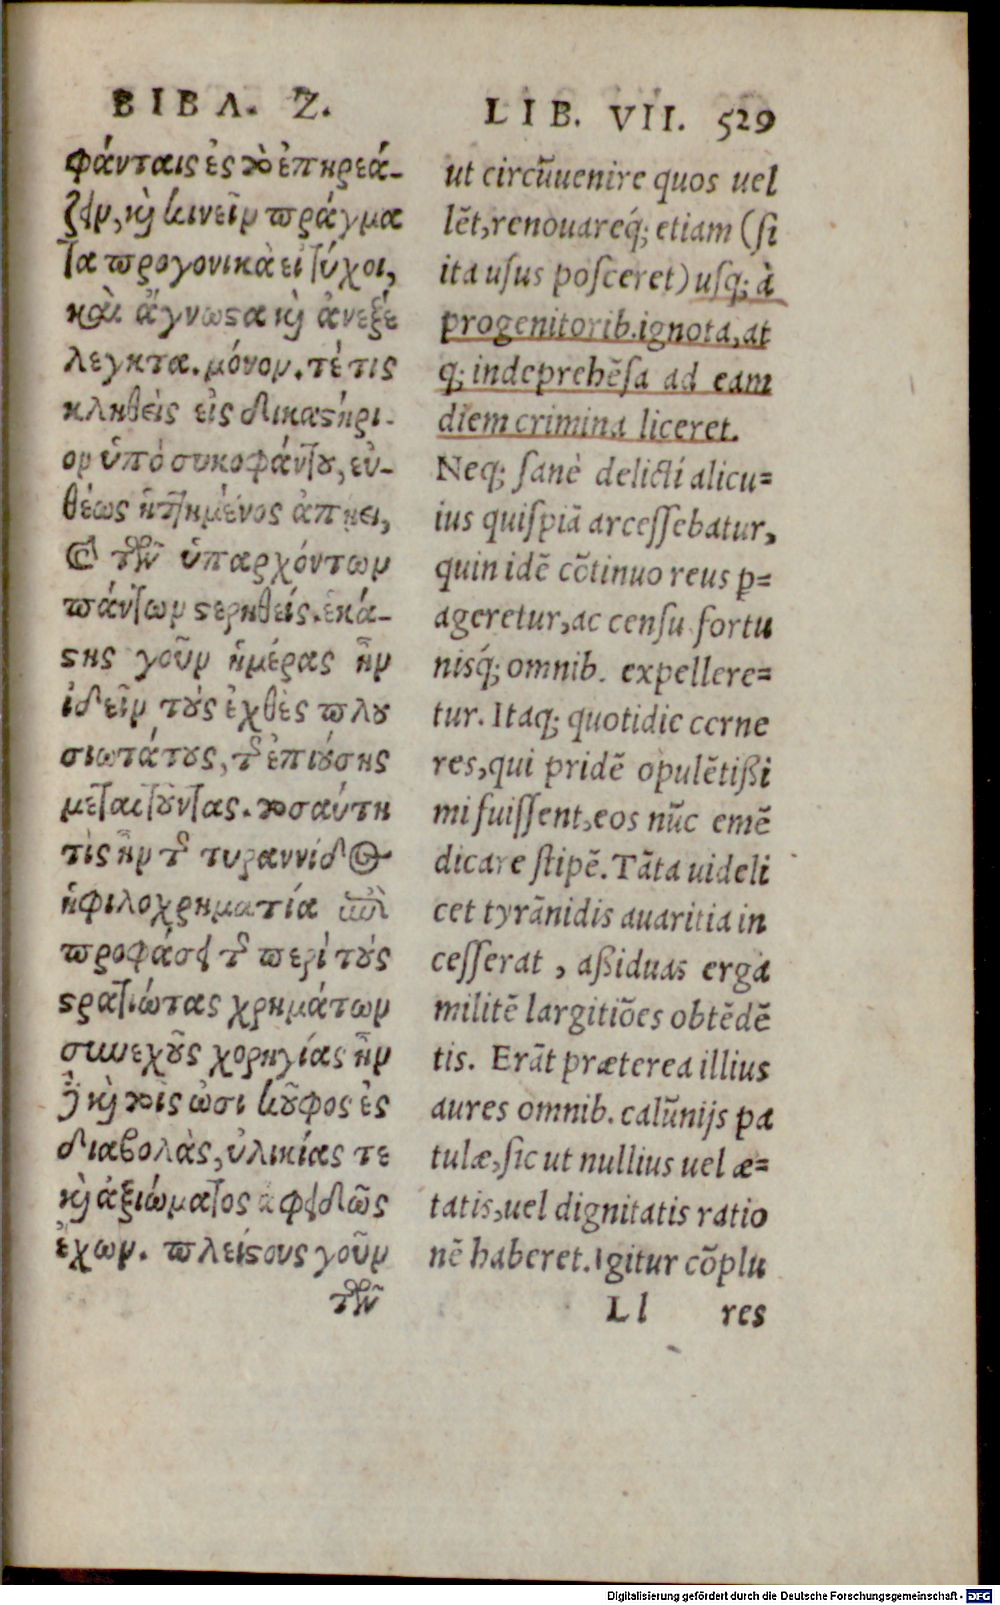 ΒΙΒΛ. Ζ.
φάνταις ἐς τὸ ἐπηρεά-
ζειν, καὶ κινεῖν πράγμα
τα προγονικὰ εἰ τύχοι,
καὶ ἄγνωστα καὶ ἀνεξέ
λεγκτα. μόνον. τέ τις
κληθεὶς εἰς δικαστήρι-
ον ὑπὸ συκοφάντου, εὐ-
θέως ἡττημένος ἀπῄει,
καὶ τῶν ὑπαρχόντων
πάντων στερηθείς. ἑκά-
στης γοῦν ἡμέρας ἦν
ἰδεῖν τοὺς ἐχθὲς πλου
σιωτάτους, τῆς ἐπιούσης
μεταιτοῦντας. τοσαύτη
τὶς ἦν τῆς τυραννίδος
ἡ φιλοχρηματία ἐπὶ
προφάσει τῆς περὶ τοὺς
στρατιώτας χρημάτων
συνεχοῦς χορηγίας ἦν
δὲ καὶ τοῖς ὠσι κοῦφος ἐς
διαβολὰς, ὑλικίας τε
καὶ ἀξιώματος ἀφειδῶς
ἔχων. πλείστους γοῦν
τῶν
LIB. VII. 529
ut circũuenire quos uel
lẽt, renouareq́; etiam (si
ita usus posceret) usq; à
progenitorib. ignota, at
q; indeprehẽsa ad eam
diem crimina liceret.
Neq; sanè delicti alicu=
ius quispiã arcessebatur,
quin idẽ cõtinuo reus p=
ageretur, ac censu fortu
nisq́; omnib. expellere=
tur. Itaq; quotidie cerne
res, qui pridẽ opulẽtißi
mi fuissent, eos nũc emẽ
dicare stipẽ. Tãta uideli
cet tyrãnidis auaritia in
cesserat, aßiduas erga
militẽ largitiões obtẽdẽ
tis. Erãt præterea illius
aures omnib. calũnijs pa
tulæ, sic ut nullius uel æ=
tatis, uel dignitatis ratio
nẽ haberet. Igitur cõplu
Ll res
Digitalisierung gefördert durch die Deutsche Forschungsgemeinschaft - DFG